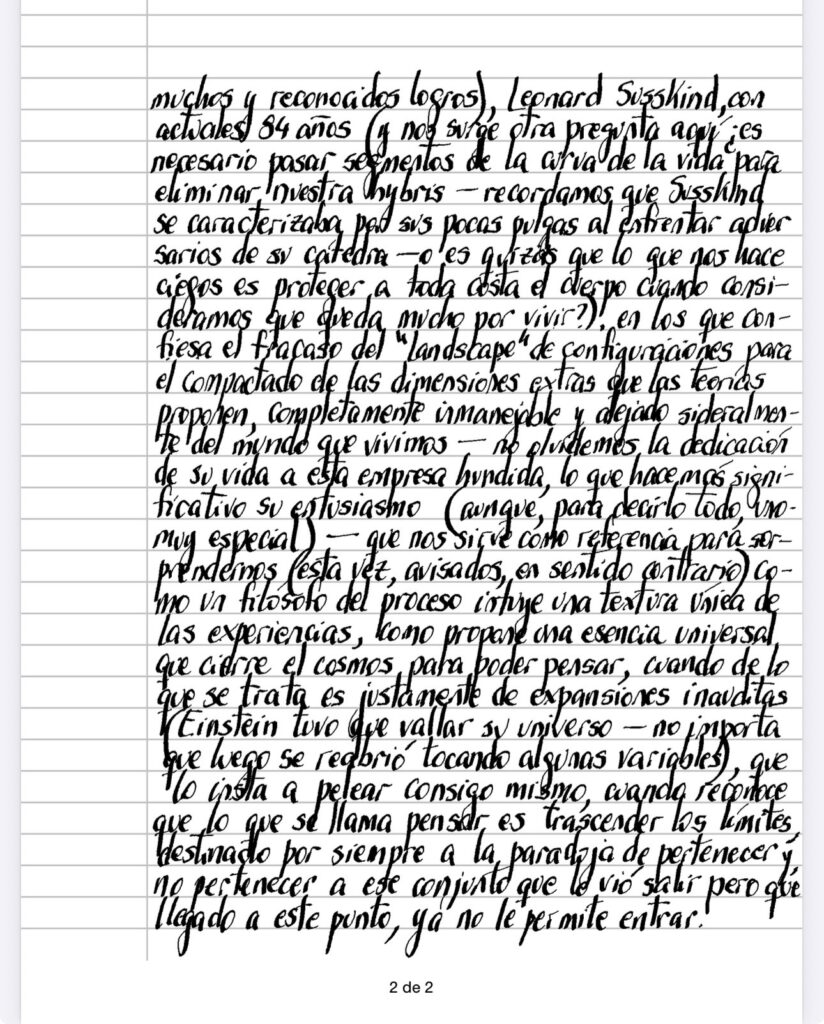 muchos y reconocidos logros), Leonard Susskind, con
actuales 84 años (y nos surge otra pregunta aquí ¿es
necesario pasar segmentos de la curva de la vida para
eliminar nuestra hybris — recordamos que Susskind
se caracterizaba por sus pocas pulgas al enfrentar adver
sarios de su cátedra — o es quizás que lo que nos hace
ciegos es proteger a toda costa el cuerpo cuando consi-
deramos que queda mucho por vivir?), en los que con-
fiesa el fracaso del "landscape" de configuraciones para
el compactado de las dimensiones extras que las teorías
proponen, completamente inmanejable y alejado sideralmen-
te del mundo que vivimos — no olvidemos la dedicación
de su vida a esta empresa hundida, lo que hace más signi-
ficativo su entusiasmo (aunque, para decirlo todo, uno
muy especial) — que nos sirve como referencia para sor-
prendernos (esta vez, avisados, en sentido contrario) co-
mo un filósofo del proceso intuye una textura única de
las experiencias, como propone una esencia universal
que cierre el cosmos para poder pensar, cuando de lo
que se trata es justamente de expansiones inauditas
(Einstein tuvo que vallar su universo — no importa
que luego se reabrió tocando algunas variables), que
lo insta a pelear consigo mismo, cuando reconoce
que lo que se llama pensar es trascender los límites,
destinado por siempre a la paradoja de pertenecer y
no pertenecer a ese conjunto que lo vió salir pero que
llegado a este punto, ya no le permite entrar.
2 de 2